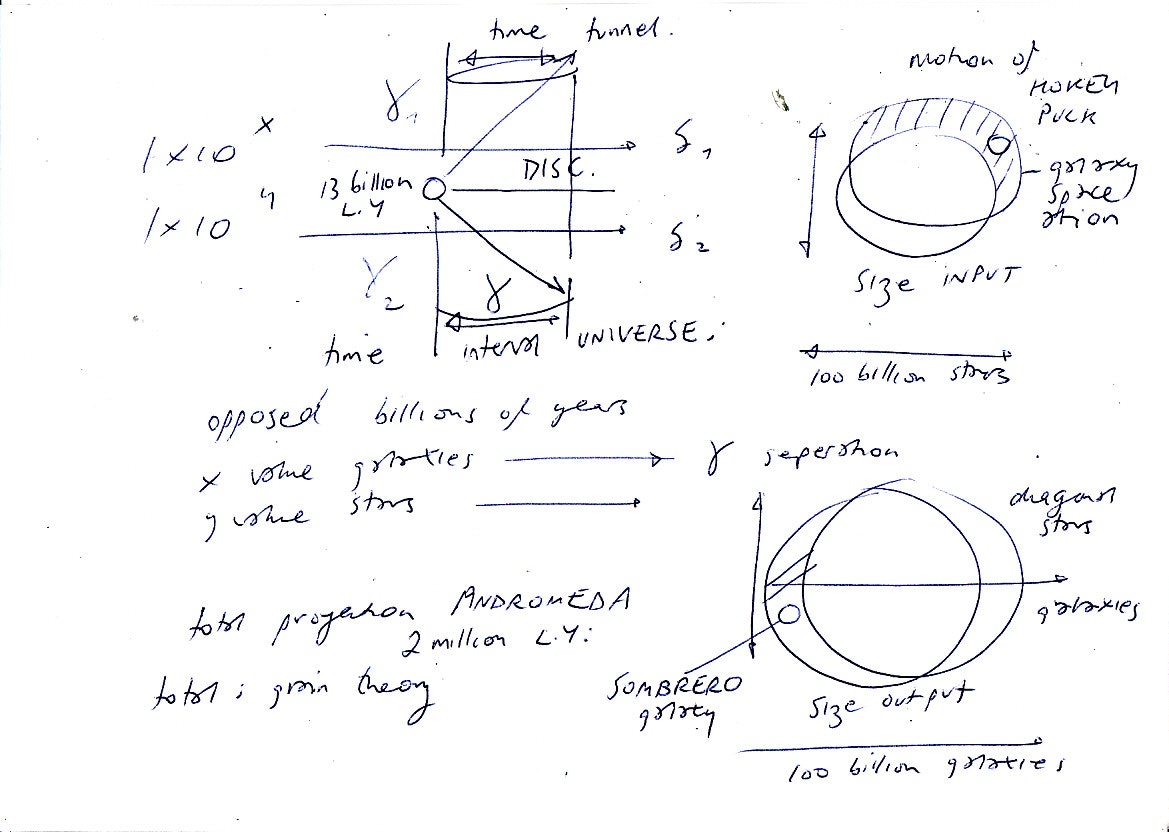 time tunnel.
γ1
1 × 10 x
δ1
DISC.
13 billion
L.Y
1 × 10 y
δ2
γ2
γ
time
interval
UNIVERSE.
motion of
HOKEY
PUCK
galaxy
space
ation
size INPUT
100 billion stars
opposed billions of years
x value galaxies
γ seperation
y value stars
diagonal
stars
galaxies
total projection ANDROMEDA
2 million L.Y.
total : grain theory
SOMBRERO
galaxy
size output
100 billion galaxies